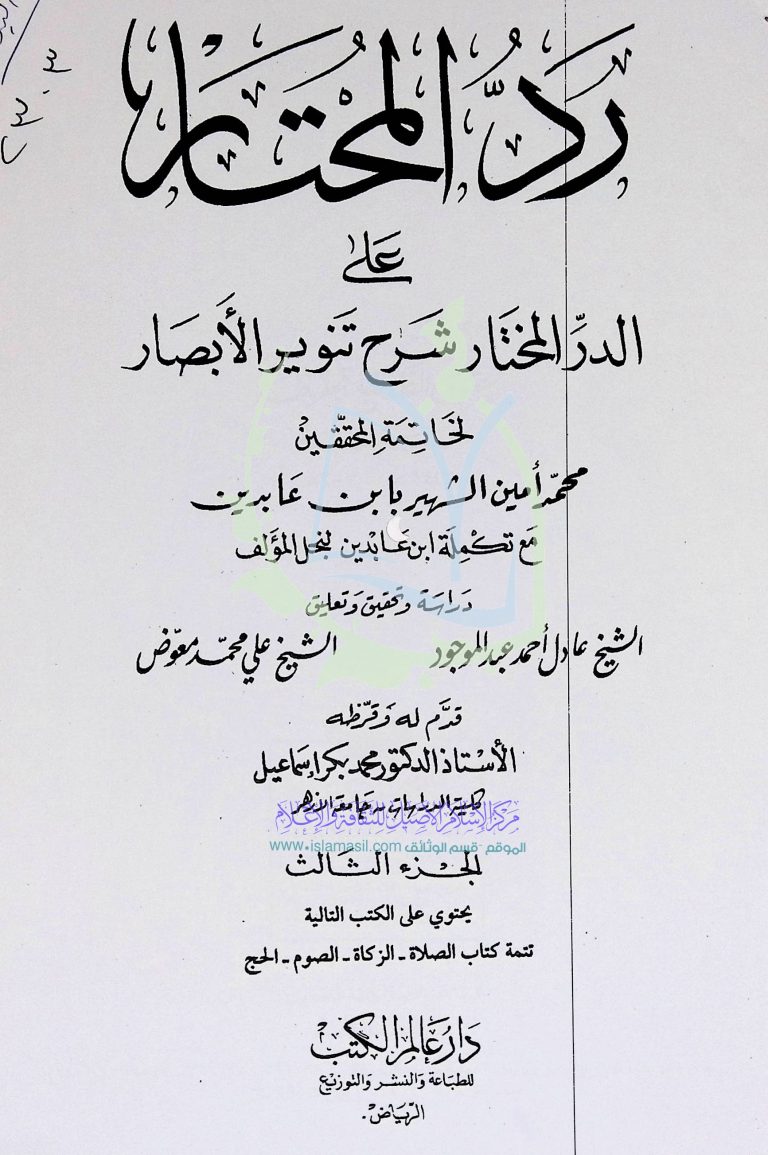 ٢٣٠٣
رَدُّ المُحتَار
عَلىٰ
الدرّ المختَار شَرح تَنوير الأبصَار
لخَاتِمَة المحَقّقين
محمّد أمين الشهير بابن عَابدين
مَع تكمِلَة ابن عَابدين لنجل المؤَلف
دَراسَة وتحقيق وَتعليق
الشيخ عادل أحمد عبد الموجود الشيخ علي محمّد معوّض
قدَّم له وَقرّظه
الأسْتاذ الدكتور محمد بكر إسماعيل
كلية الدراسات - جَامعة الأزهر
مركز الإسلام الأصيل للثقافة والإعلام
الموقع - قسم الوثائق www.islamasil.com
الجزء الثَالث
يحتوي على الكتب التالية
تتمة كتاب الصلاة - الزكاة - الصوم - الحج
دَار عَالم الكتب
للطباعة وَالنشر وَالتوزيع
الرّيَاض.